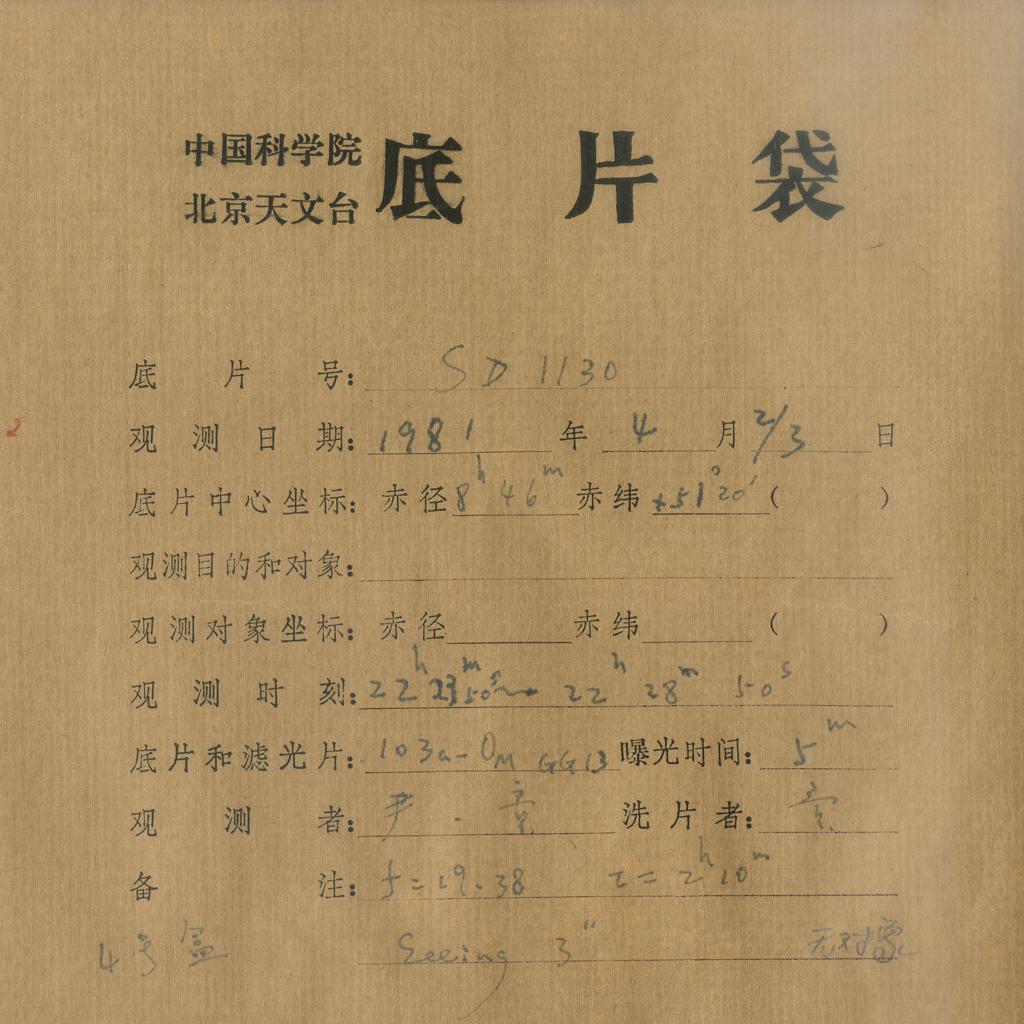 中国科学院
北京天文台
底片袋
底片号: SD 1130
观测日期: 1981年 4月 2/3日
底片中心坐标: 赤径 8h 46m 赤纬 +51°20′ ( )
观测目的和对象:
观测对象坐标: 赤径 赤纬 ( )
观测时刻: 22h 23m 50s ~ 22h 28m 50s
底片和滤光片: 103a-OM GG13 曝光时间: 5m
观测者: 尹 . 洗片者:
备注: f=19.38 t=2h10m
4号盒 Seeing 3″ 无对象